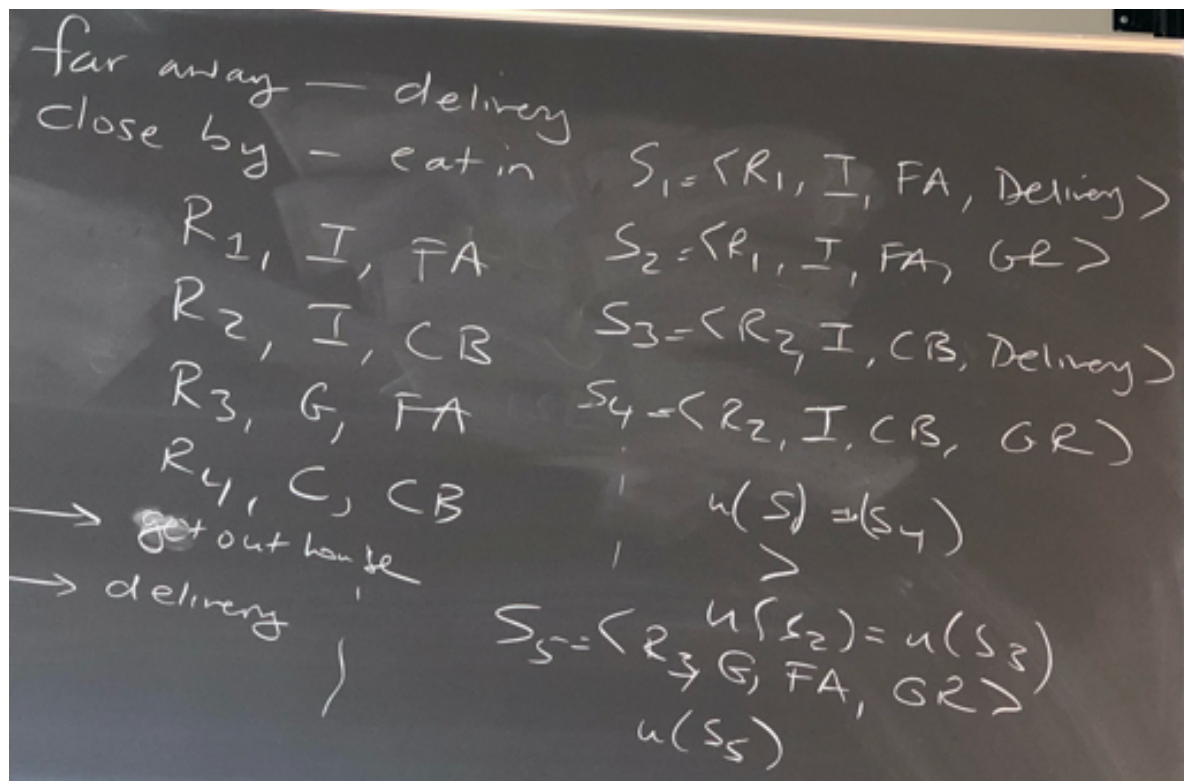 far away — delivery
close by - eat in
R1, I, FA
R2, I, CB
R3, G, FA
R4, C, CB
→ get out house
→ delivery
S1=<R1, I, FA, Delivery>
S2=<R1, I, FA, GR>
S3=<R2, I, CB, Delivery>
S4=<R2, I, CB, GR>
u(S1) = u(S4)
>
u(S2) = u(S3)
S5=<R3, G, FA, GR>
u(S5)